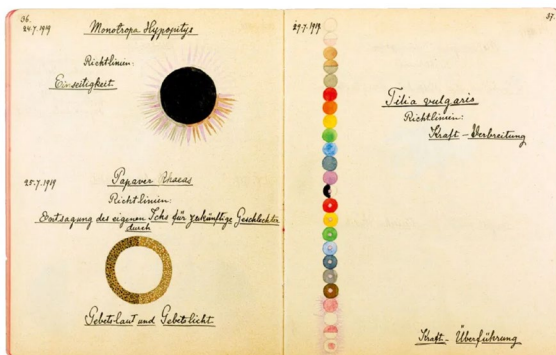 36.
24.7.1919
Monotropa Hypopitys
Richtlinien:
Einseitigkeit.
25.7.1919
Papaver Rhoeas
Richtlinien:
Entsagung des eigenen Ichs für zukünftige Geschlechter
durch
Gebetslaut und Gebetslicht.
37.
29.7.1919
Tilia vulgaris
Richtlinien:
Kraft-Verbreitung
Kraft-Überführung